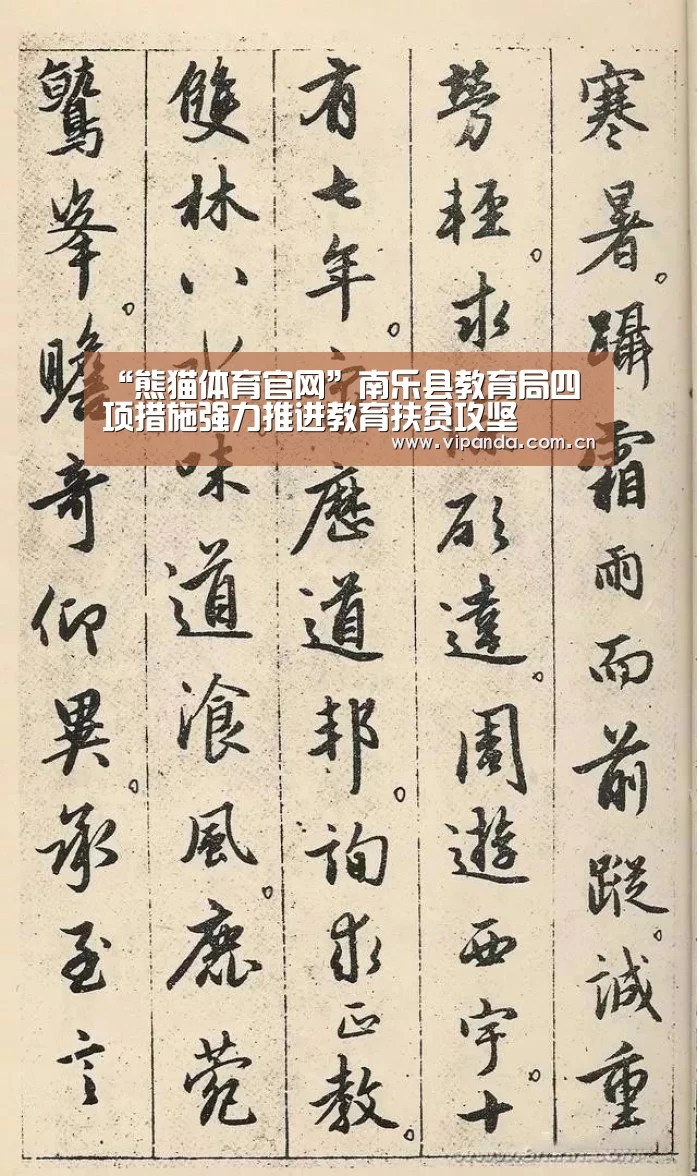 寒暑。躡霜雨而前蹤。誠重
勞輕。求願達。周遊西宇。十
有七年。歷道邦。詢求正教。
雙林八水味道湌風。鹿菀
鷲峯。瞻奇仰異。承至言
“熊猫体育官网”南乐县教育局四
项措施强力推进教育扶贫攻坚
www.vipanda.com.cn